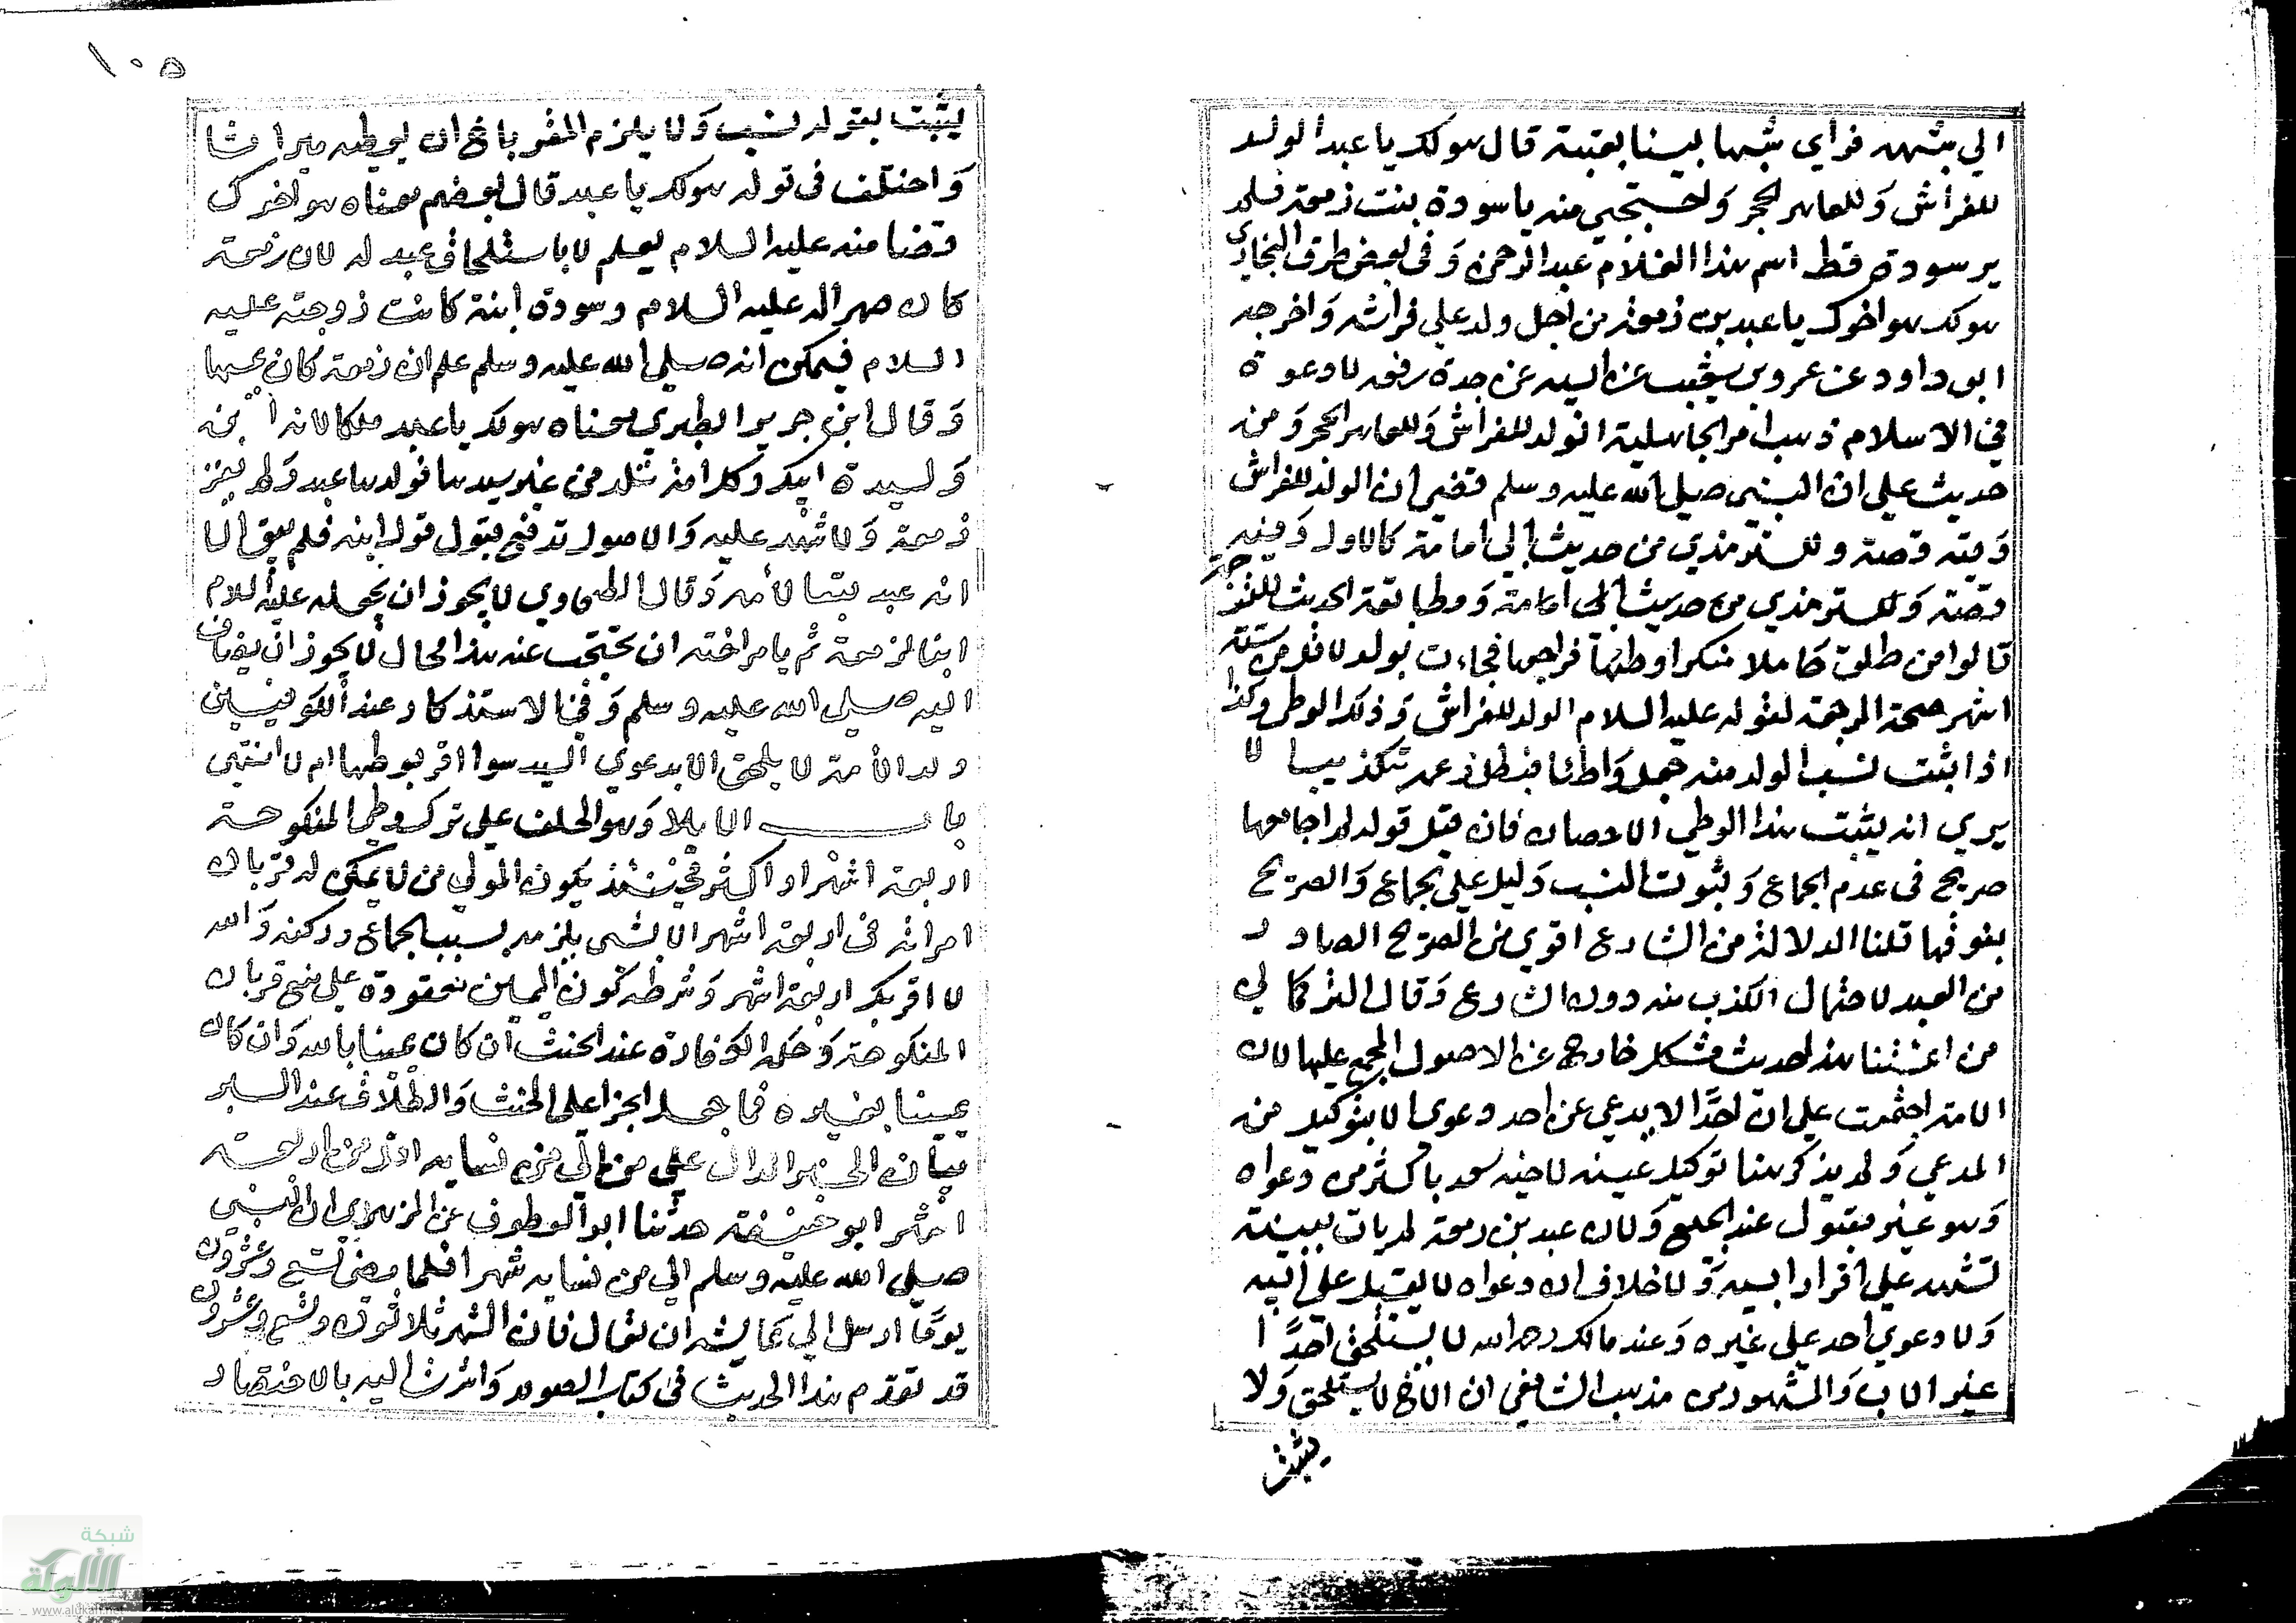 الي شبهه فراي شبها بينا بعتبة قال هو لك يا عبد الولد
للفراش وللعاهر الحجر واحتجبي منه يا سودة بنت زمعة فلم
ير سودة قط اسم هذا الغلام عبد الرحمن وفي بعض طرق البخاري
هو لك هو اخوك يا عبد بن زمعة من اجل ولد علي فراشه واخرجه
ابو داود عن عمرو بن شعيب عن ابيه عن جده رفعه لا دعوة
في الاسلام ذهب امر الجاهلية الولد للفراش وللعاهر الحجر ومن
حديث علي ان النبي صلي الله عليه وسلم قضي ان الولد للفراش
وفيه قصة وللترمذي من حديث ابي امامة كالاول وفيه
قصة وللترمذي من حديث ابي امامة ومطابقة الحديث للترجمة
قالوا من طلق حاملا منكرا وطئها فراجعها فجاءت بولد لاقل من ستة
اشهر صحة الرجعة لقوله عليه السلام الولد للفراش وذلك الوطي وكذا
اذا ثبت نسب الولد منه جعل واطئا فبطل زعمه بتكذيب لا
يري انه يثبت هذا الوطي الاحصان فان قيل قوله لم اجامعها
صريح في عدم الجماع وثبوت النسب دليل علي الجماع والصريح
بفوقها قلنا الدلالة من الشارع اقوي من الصريح الصادر
من العبد لاحتمال الكذب منه دون الشارع وقال التركماني
من ائمتنا هذا حديث مشكل خارج عن الاصول المجمع عليها لان
الامة اجتمعت علي ان احدا لا يدعي عن احد دعوي الا بتوكيل من
المدعي ولم يذكر هنا توكيل عتبة لاخيه سعد باكثر من دعواه
وهو غير مقبول عند الجميع ولان عبد بن زمعة لم يات ببينة
تشهد علي اقرار ابيه ولا خلاف ان دعواه لا يقبل علي ابيه
ولا دعوي احد علي غيره وعند مالك رحمه الله لا يستلحق احدا
غير الاب والمشهور من مذهب الشافعي ان الاخ لا يستلحق ولا
يثبت
١٠٥
يثبت بقوله نسب ولا يلزم المقر باخ ان يعطيه ميراثا
واختلف في قوله هو لك يا عبد قال بعضهم معناه هو اخوك
قضا منه عليه السلام بعلمه لا باستلحاق عبد له لان زمعة
كان صهرا له عليه السلام وسودة ابنته كانت زوجته عليه
السلام فيمكن انه صلي الله عليه وسلم علم ان زمعة كان يمسها
وقال ابن جرير الطبري معناه هو لك يا عبد ملكا لانه ابن
وليدة ابيك وكل امة تلد من غير سيدها فولدها عبد ولم يقر
زمعة ولا شهد عليه والاصول تدفع قبول قول ابنه فلم يبق الا
انه عبد تبعا لامه وقال الطحاوي لا يجوز ان يجعله عليه السلام
ابنا لزمعة ثم يامر اخته ان تحتجب عنه هذا محال لا يجوز ان يضاف
اليه صلي الله عليه وسلم وفي الاستذكار عند الكوفيين
ولد الامة لا يلحق الا بدعوي السيد سوا اقر بوطئها ام لا انتهي
باب الايلا وهو الحلف علي ترك وطي المنكوحة
اربعة اشهر او اكثر فحينئذ يكون المولي من لا يمكن له قربان
امراته في اربعة اشهر الا بشي يلزمه بسبب الجماع وركنه والله
لا اقربك اربعة اشهر وشرطه كون اليمين معقودة علي منع قربان
المنكوحة وحكمه الكفارة عند الحنث ان كان يمينا بالله وان كان
يمينا بغيره فما جعل الجزا علي الحنث والطلاق عند البر
بيان الخبر الدال علي من الي من نسايه اقل من اربعة
اشهر ابو حنيفة حدثنا ابو العطوف عن الزهري ان النبي
صلي الله عليه وسلم الي من نسايه شهرا فلما مضي تسع وعشرون
يوما ارسل الي عايشة ان تعال فان الشهر ثلاثون وتسع وعشرون
قد تقدم هذا الحديث في كتاب الصوم واشرنا اليه بالاختصار
شبكة
الألوكة
www.alukah.net